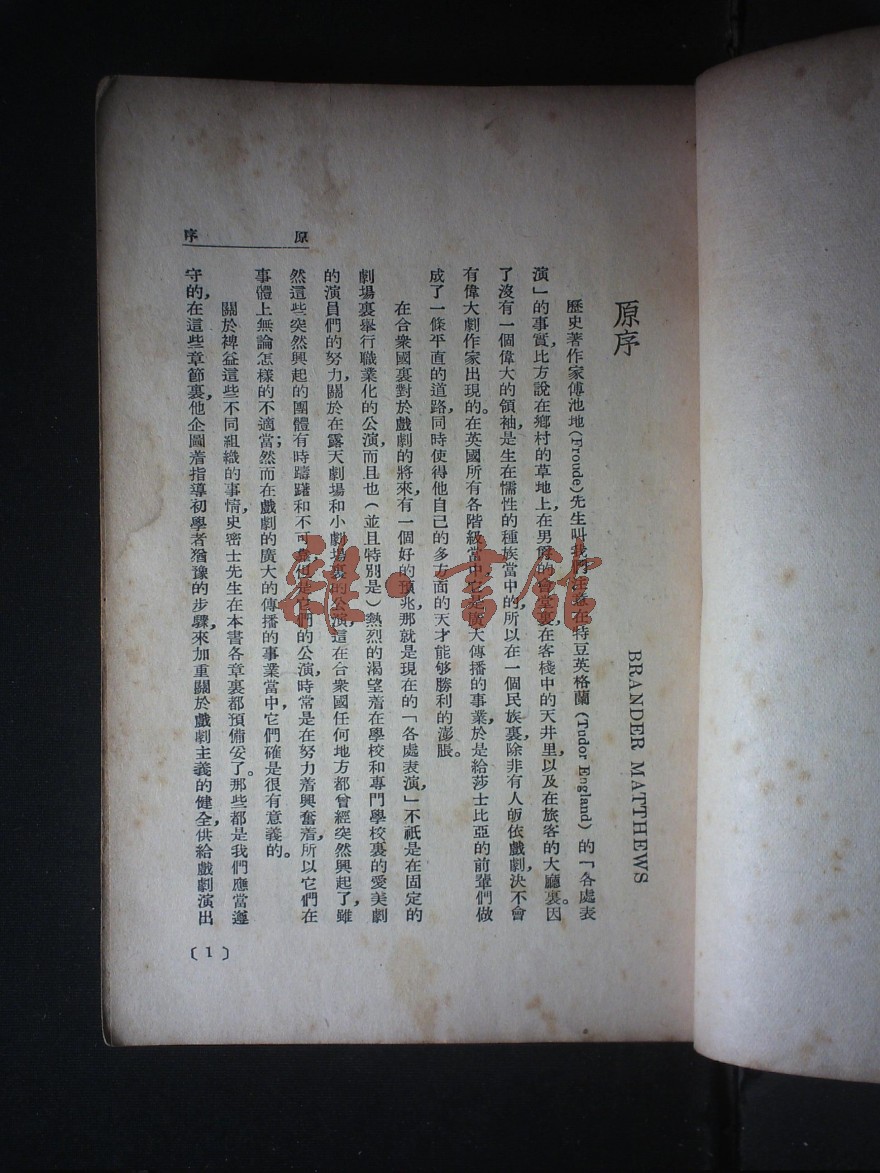 原序
BRANDER MATTHEWS
歷史著作家傅池地(Froude)先生叫我們注意在特豆英格蘭(Tudor England)的「各處表
演」的事實,比方說在鄉村的草地上,在男爵的會堂裏,在客棧中的天井里,以及在旅客的大廳裏。因
了沒有一個偉大的領袖,是生在懦性的種族當中的,所以在一個民族裏,除非有人皈依戲劇,決不會
有偉大劇作家出現的。在英國所有各階級當中,它是廣大傳播的事業,於是給莎士比亞的前輩們做
成了一條平直的道路,同時使得他自己的多方面的天才能够勝利的澎脹。
在合衆國裏對於戲劇的將來有一個好的預兆,那就是現在的「各處表演」不祇是在固定的
劇場裏舉行職業化的公演,而且也(並且特別是)熱烈的渴望着在學校和專門學校裏的愛美劇
的演員們的努力,關於在露天劇場和小劇場裏的公演,這在合衆國任何地方都曾經突然興起了,雖
然這些突然興起的團體有時躊躇和不可靠,但是它們的公演,時常是在努力着興奮着,所以它們在
事體上無論怎樣的不適當;然而在戲劇的廣大的傳播的事業當中,它們確是很有意義的。
關於裨益這些不同組織的事情,史密士先生在本書各章裏都預備妥了。那些都是我們應當遵
守的,在這些章節裏,他企圖着指導初學者猶豫的步驟,來加重關於戲劇主義的健全,供給戲劇演出
原序
〔1〕
雜·書館